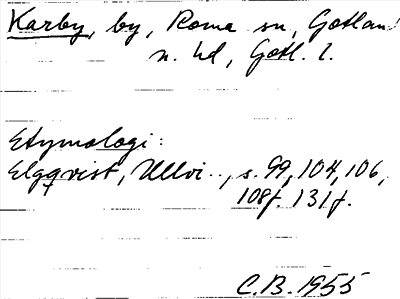 Karby, by, Roma sn, Gotlands
n. hd, Gotl. l.
Etymologi:
Elgqvist, Ullvi.., s. 99, 104, 106,
108f. 131f.
C.B. 1955